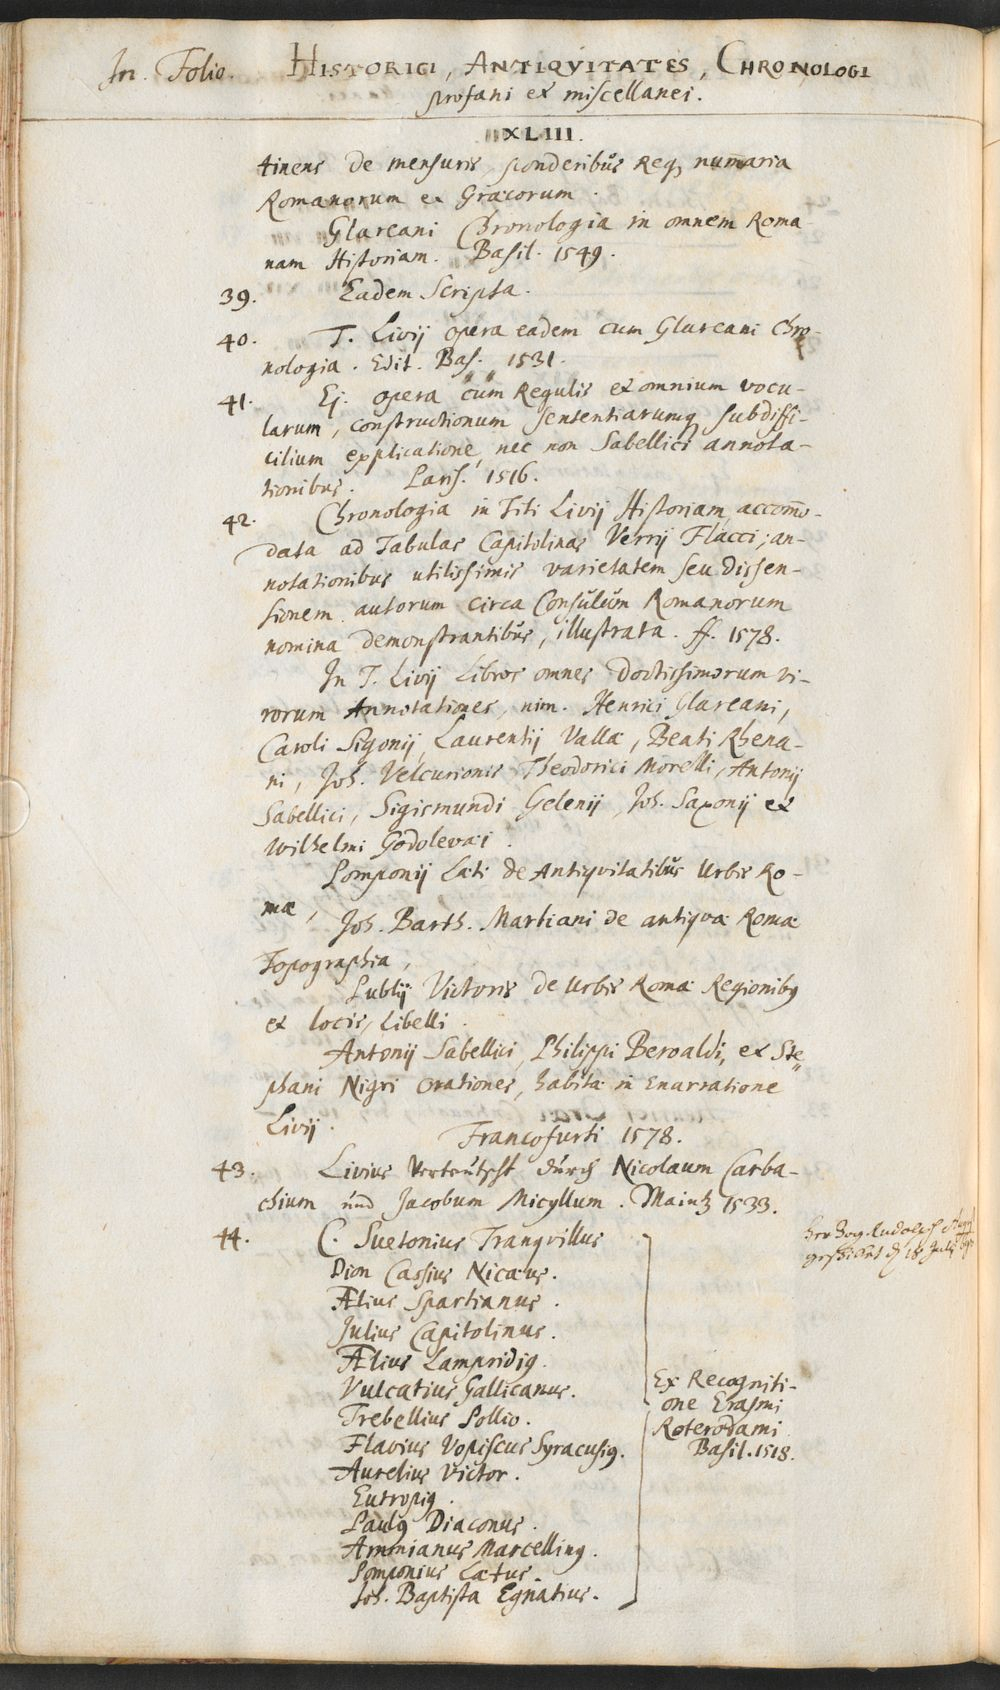 In Folio. HISTORICI, ANTIQVITATES, CHRONOLOGI
profani et miscellanei.
XLIII.
tinens de mensuris, ponderibus Req3 num̄aria
Romanorum et Græcorum.
Glareani Chronologia in omnem Roma
nam Historiam. Basil. 1549.
39. Eadem Scripta.
40. T. Livij opera eadem cum Glareani Chro-
nologia. Edit. Bas. 1531.
41. Ej. opera cum Regulis et omnium vocu-
larum, constructionum sententiarumq3 subdiffi-
cilium explicatione, nec non Sabellici annota-
tionibus. Paris. 1516.
42. Chronologia in Titi Livij Historiam accom̄o-
data ad Tabulas Capitolinas Verrij Flacci; an-
notationibus utilissimis varietatem seu dissen-
sionem autorum circa Consulum Romanorum
nomina demonstrantibus, illustrata. ff. 1578.
In T. Livij Libros omnes doctissimorum vi-
rorum Annotationes, nim. Henrici Glareani,
Caroli Sigonij, Laurentij Vallæ, Beati Rhena-
ni, Joh. Velcurionis Theodorici Morelli, Antonij
Sabellici, Sigismundi Gelenij, Joh. Saxonij et
Wilhelmi Godolevæi.
Pomponij Læti de Antiqvitatibus Urbis Ro-
mæ,
Joh. Barth. Marliani de antiqvæ Romæ
Topographia,
Publij Victoris de Urbis Romæ Regionibus
et locis, Libelli.
Antonij Sabellici, Philippi Beroaldi, et Ste
phani Nigri orationes, habitæ in Enarratione
Livij.
Francofurti 1578.
43. Livius Verteutscht durch Nicolaum Carba-
chium und Jacobum Micyllum. Maintz 1533.
44. C. Suetonius Tranqvillus
Dion Cassius Nicæus.
Ælius Spartianus.
Julius Capitolinus.
Ælius Lampridius.
Vulcatius Gallicanus.
Trebellius Pollio.
Flavius Vopiscus Syracusius.
Aurelius Victor.
Eutropius.
Paulus Diaconus.
Ammianus Marcellinus.
Pomponius Lætus.
Joh. Baptista Egnatius.
Ex Recogniti-
one Erasmi
Roterodami
Basil. 1518.
Herzog Rudolph
18 Julij